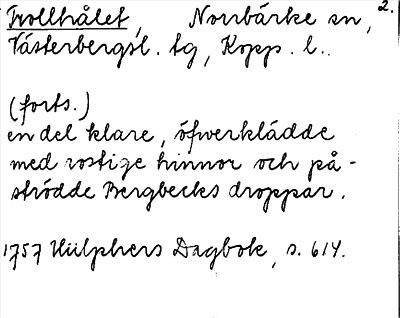 2.
Trollhålet, Norrbärke sn,
Västerbergsl. tg, Kopp. l.
(forts.)
en del klare, öfwerklädde
med rostige hinnor och på-
strödde Bergbecks droppar.
1757 Hülphers Dagbok, s. 614.